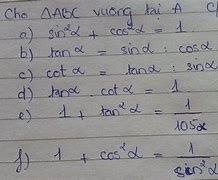 Cho ΔABC vuông tại A
a) sin²α + cos²α = 1
b) tanα = sinα : cosα
c) cotα = tanα : sinα
d) tanα . cotα = 1
e) 1 + tan²α = 1/105α
f) 1 + cos²α = 1/sin²α